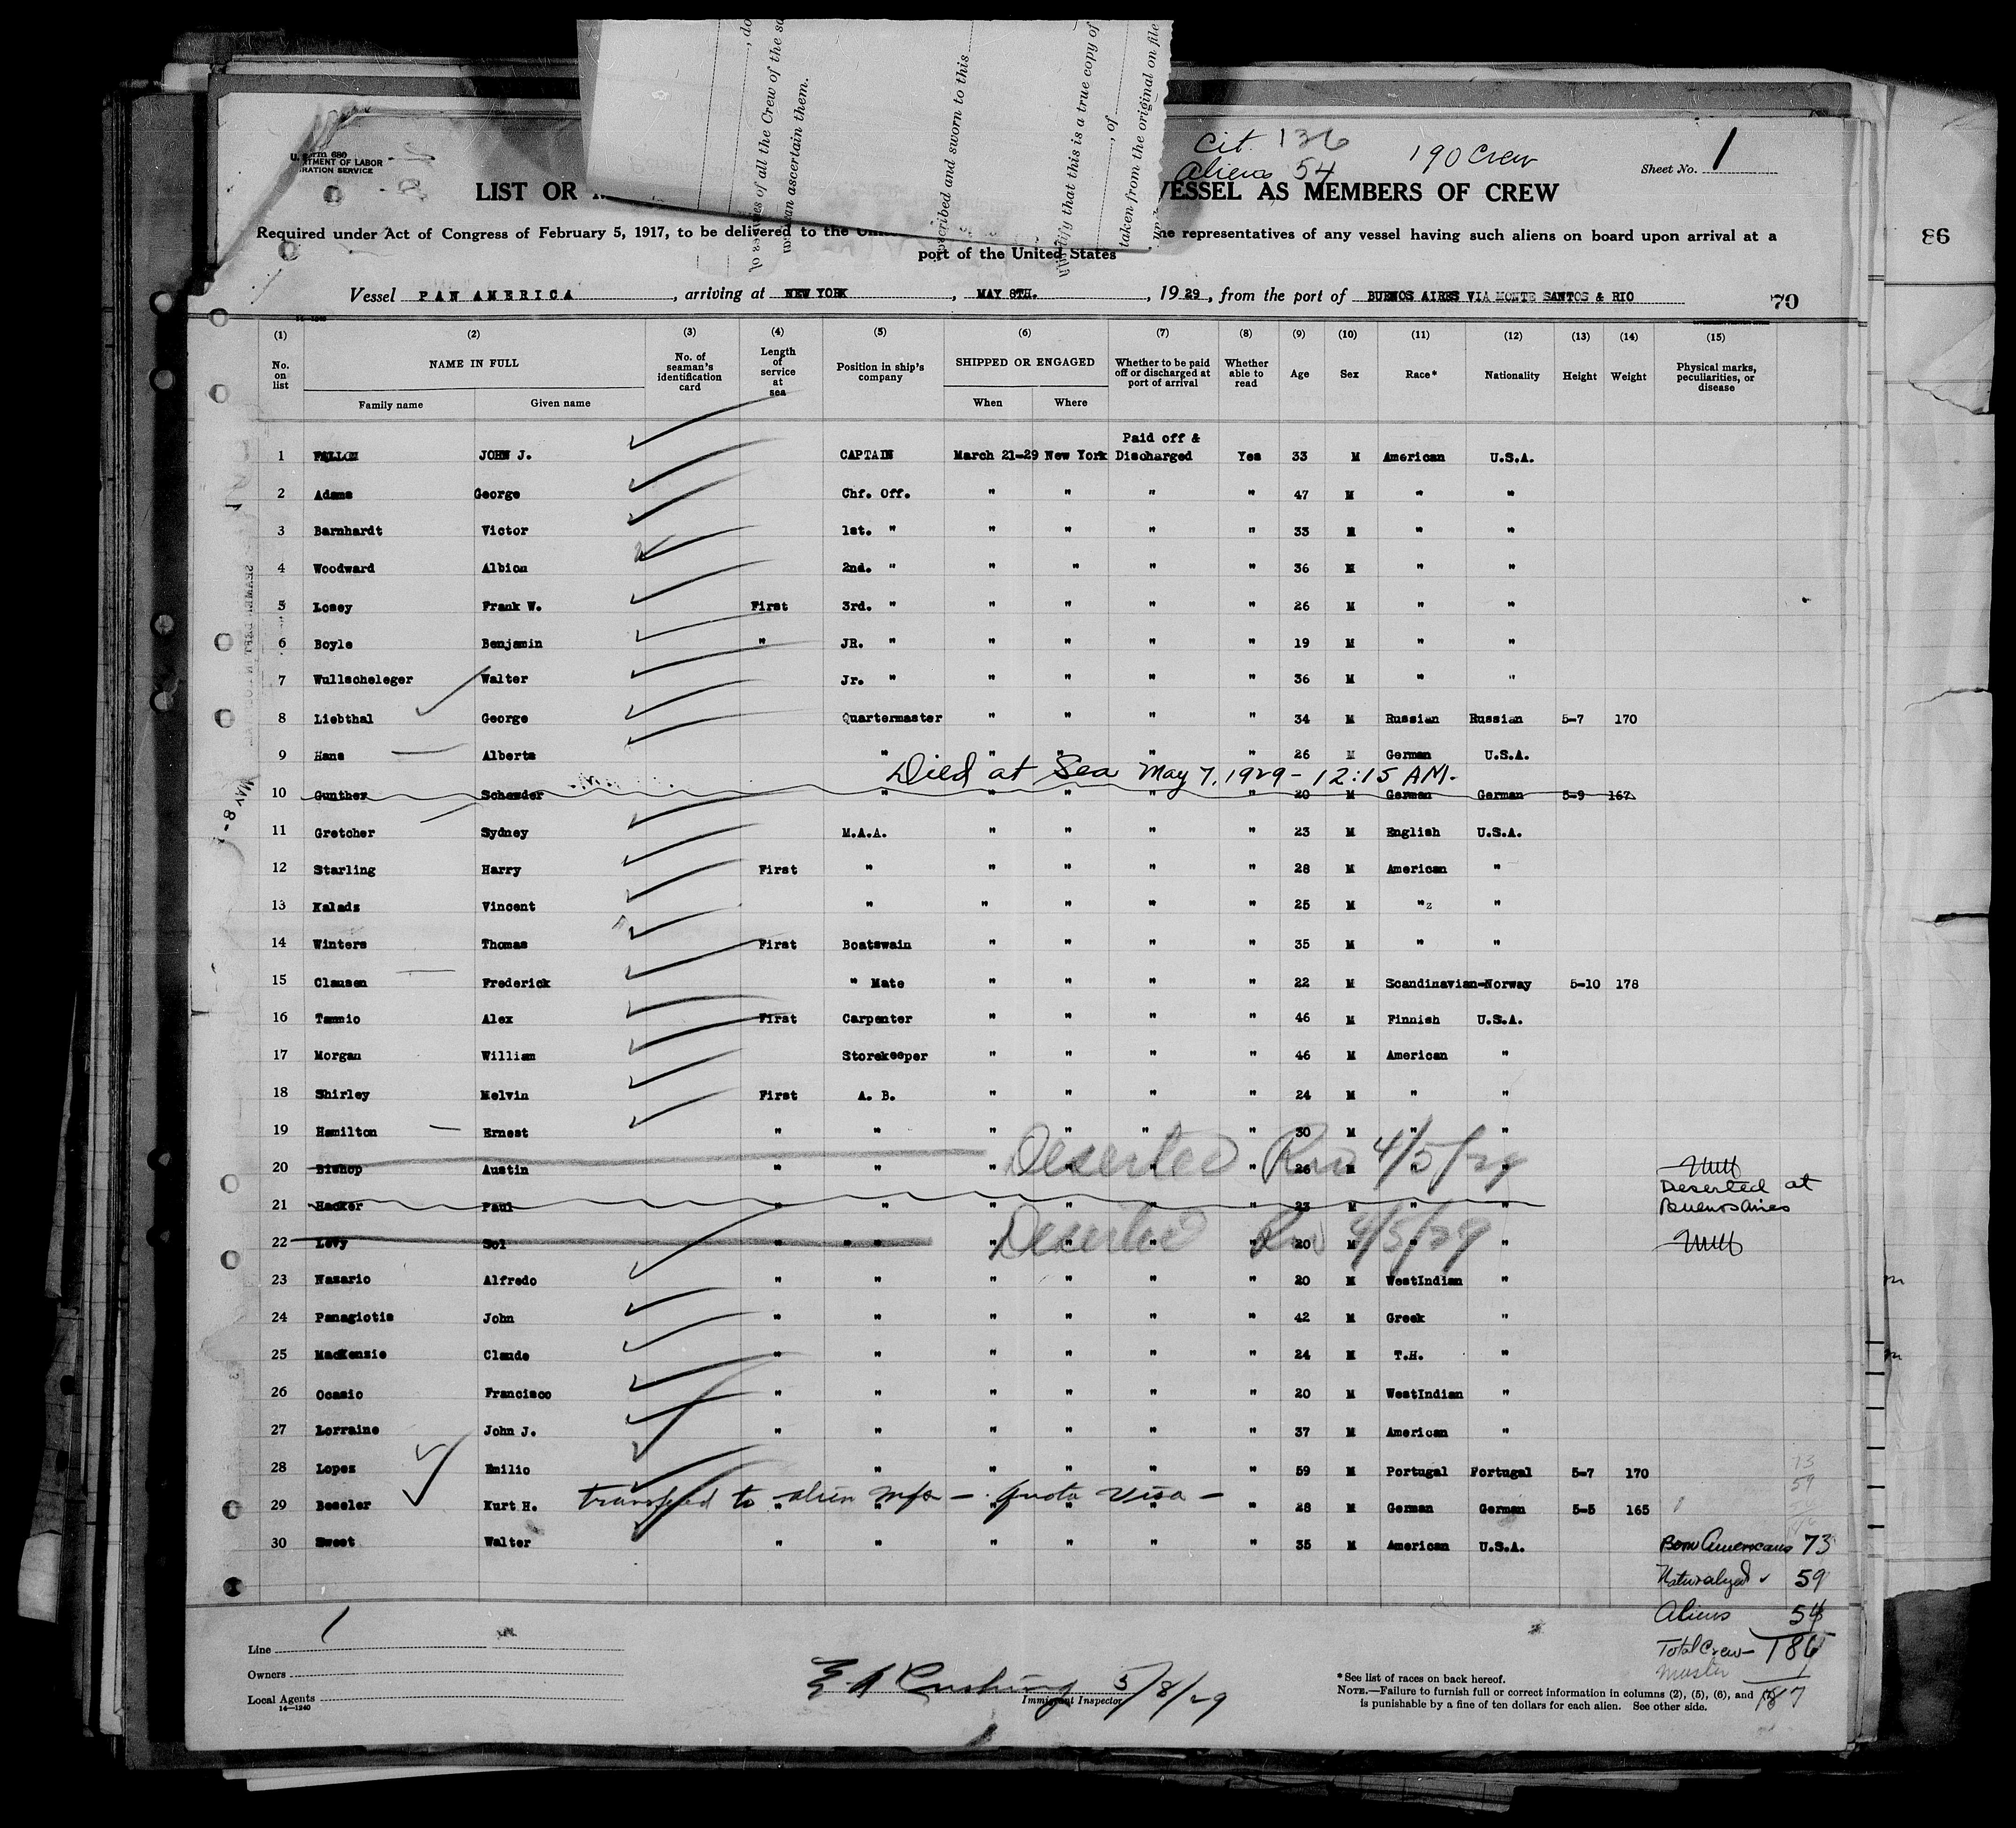 , do
of all the Crew of the
can ascertain them.
scribed and sworn to this
that this is a true copy of
, of
taken from the original on file
Cit. 136
Aliens 54
190 Crew
Sheet No. 1
Form 680
LABOR
SERVICE
LIST OR
VESSEL AS MEMBERS OF CREW
Required under Act of Congress of February 5, 1917, to be delivered to the
representatives of any vessel having such aliens on board upon arrival at a
port of the United States
86
Vessel PAN AMERICA, arriving at NEW YORK, MAY 8TH., 1929, from the port of BUENOS AIRES VIA MONTE SANTOS & RIO
70
(1) (2) (3) (4) (5) (6) (7) (8) (9) (10) (11) (12) (13) (14) (15)
No. on list NAME IN FULL No. of seaman's identification card Length of service at sea Position in ship's company SHIPPED OR ENGAGED Whether to be paid off or discharged at port of arrival Whether able to read Age Sex Race* Nationality Height Weight Physical marks, peculiarities, or disease
Family name Given name When Where
Paid off &
1 FALLON JOHN J. CAPTAIN March 21-29 New York Discharged Yes 33 M American U.S.A.
2 Adams George Chf. Off. " " " " 47 M " "
3 Barnhardt Victor 1st. " " " " " 33 M " "
4 Woodward Albion 2nd. " " " " " 36 M " "
5 Losey Frank W. First 3rd. " " " " " 26 M " "
6 Boyle Benjamin " JR. " " " " " 19 M " "
7 Wullscheleger Walter Jr. " " " " " 36 M " "
8 Liebthal George Quartermaster " " " " 34 M Russian Russian 5-7 170
9 Hans Alberts " " " " " 26 M German U.S.A.
Died at Sea May 7, 1929 - 12:15 AM.
10 Gunther Schawder " " " " " 20 M German German 5-9 167
11 Gretcher Sydney M.A.A. " " " " 23 M English U.S.A.
12 Starling Harry First " " " " " 28 M American "
13 Kalads Vincent " " " " " 25 M "z "
14 Winters Thomas First Boatswain " " " " 35 M " "
15 Clausen Frederick " Mate " " " " 22 M Scandinavian-Norway 5-10 178
16 Tammio Alex First Carpenter " " " " 46 M Finnish U.S.A.
17 Morgan William Storekeeper " " " " 46 M American "
18 Shirley Melvin First A. B. " " " " 24 M " "
19 Hamilton Ernest " " " " " " 30 M " "
Deserted Rio 4/5/29
20 Bishop Austin " " " " " " 26 M " "
Deserted at
21 Hacker Paul " " " " " " 23 M " " Buenos Aires
Deserted Rio 4/5/29
22 Levy Sol " " " " " " " 20 M " "
23 Nazario Alfredo " " " " " " 20 M WestIndian "
24 Panagiotis John " " " " " " 42 M Greek "
25 MacKenzie Claude " " " " " " 24 M T.H. "
26 Ocasio Francisco " " " " " " 20 M WestIndian "
27 Lorraine John J. " " " " " " 37 M American "
28 Lopez Emilio " " " " " 59 M Portugal Portugal 5-7 170
transferred to alien mfs - quota visa -
29 Beseler Kurt H. " " " " " " 28 M German German 5-5 165
30 Sweet Walter " " " " " " 35 M American U.S.A.
Born Americans 73
Naturalized 59
Aliens 54
Total Crew - 186
Master 1
187
MAY 8-
Line 1
Owners
Local Agents
14-1240
E A Cushing 5/8/29
Immigrant Inspector
*See list of races on back hereof.
NOTE.—Failure to furnish full or correct information in columns (2), (5), (6), and
is punishable by a fine of ten dollars for each alien. See other side.